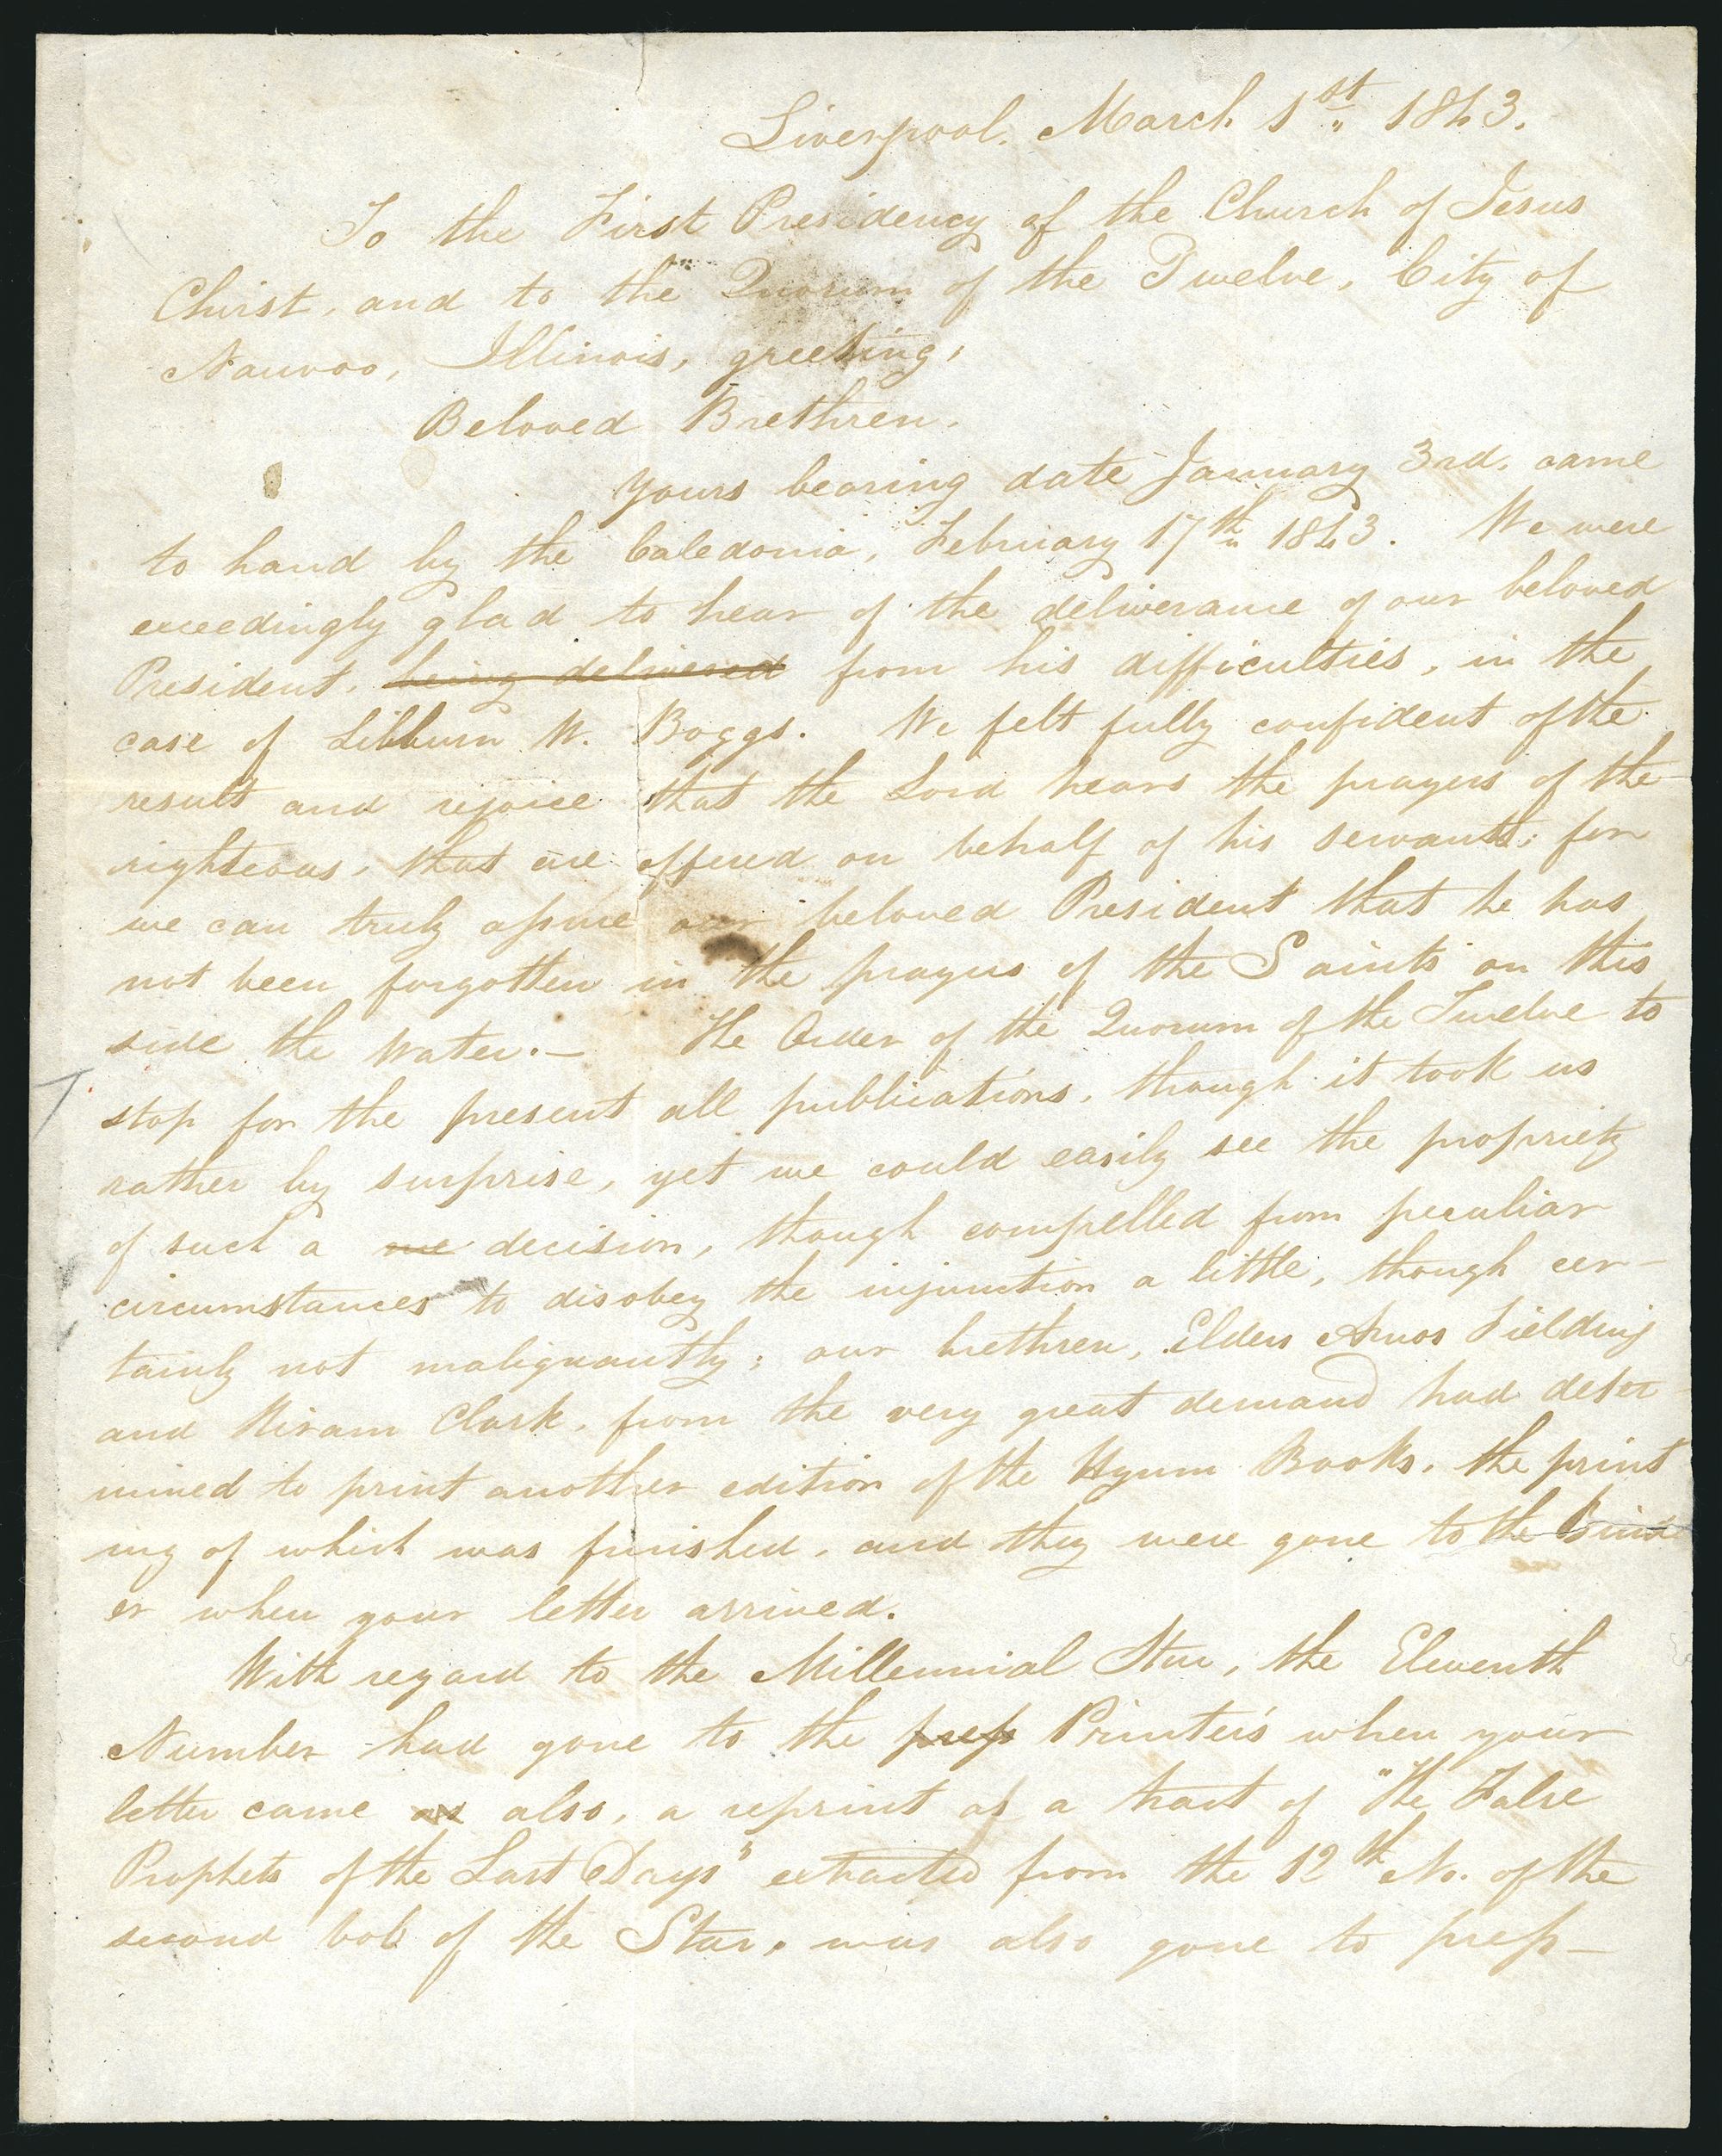 Liverpool. March 1st 1843.
To the First Presidency of the Church of Jesus
Christ, and to the Quorum of the Twelve, City of
Nauvoo, Illinois, greeting,
Beloved Brethren,
Yours bearing date January 3rd. came
to hand by the Caledonia, February 17th 1843. We were
exceedingly glad to hear of the deliverance of our beloved
President, being delivered from his difficulties, in the
case of Lilburn W. Boggs. We felt fully confident of the
result and rejoice that the Lord hears the prayers of the
righteous, that are offered on behalf of his servants; for
we can truly assure our beloved President that he has
not been forgotten in the prayers of the Saints on this
side the Water.— The Order of the Quorum of the Twelve to
stop for the present all publications, though it took us
rather by surprise, yet we could easily see the propriety
of such a one decision, though compelled from peculiar
circumstances to disobey the injunction a little, though cer-
tainly not malignantly; our brethren, Elders Amos Fielding
and Hiram Clark, from the very great demand had deter
mined to print another edition of the Hymn Books, the print
ing of which was finished, and they were gone to the bind
er when your letter arrived.
With regard to the Millennial Star, the Eleventh
Number had gone to the press Printer's when your
letter came as also, a reprint as a tract of "The False
Prophets of the Last Days" extracted from the 12th No. of the
second vol of the Star, was also gone to press—